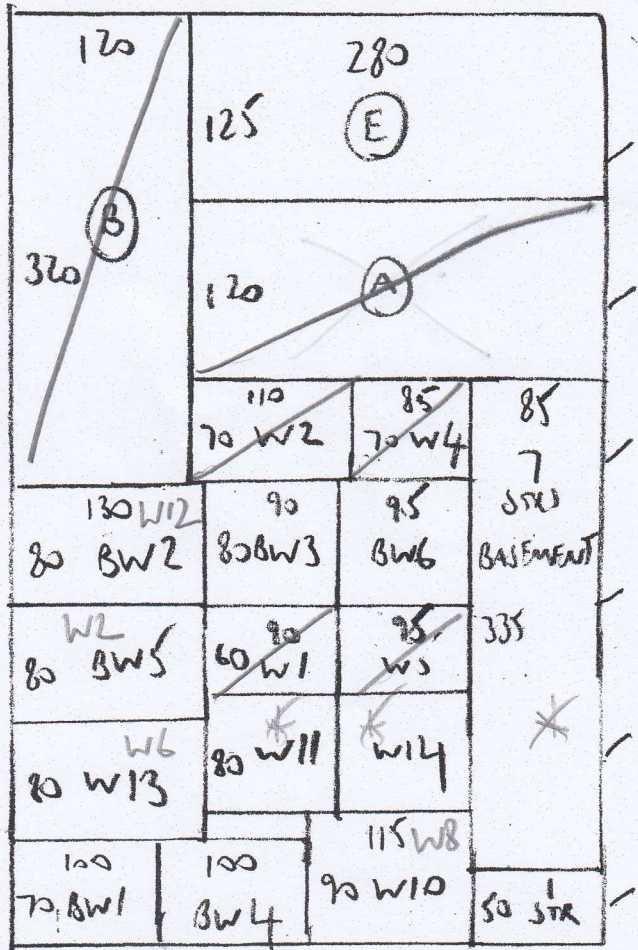 120
B
320
280
125
E
120
A
110
70 W2
85
70 W4
85
7
BASEMENT
335
130 W12
80 BW2
90
80 BW3
95
BW6
W2
80 BW5
80
60 W1
95
W6
80 W13
80 W11
W14
100
70 BW1
100
BW4
115 W8
90 W10
1
50 STR